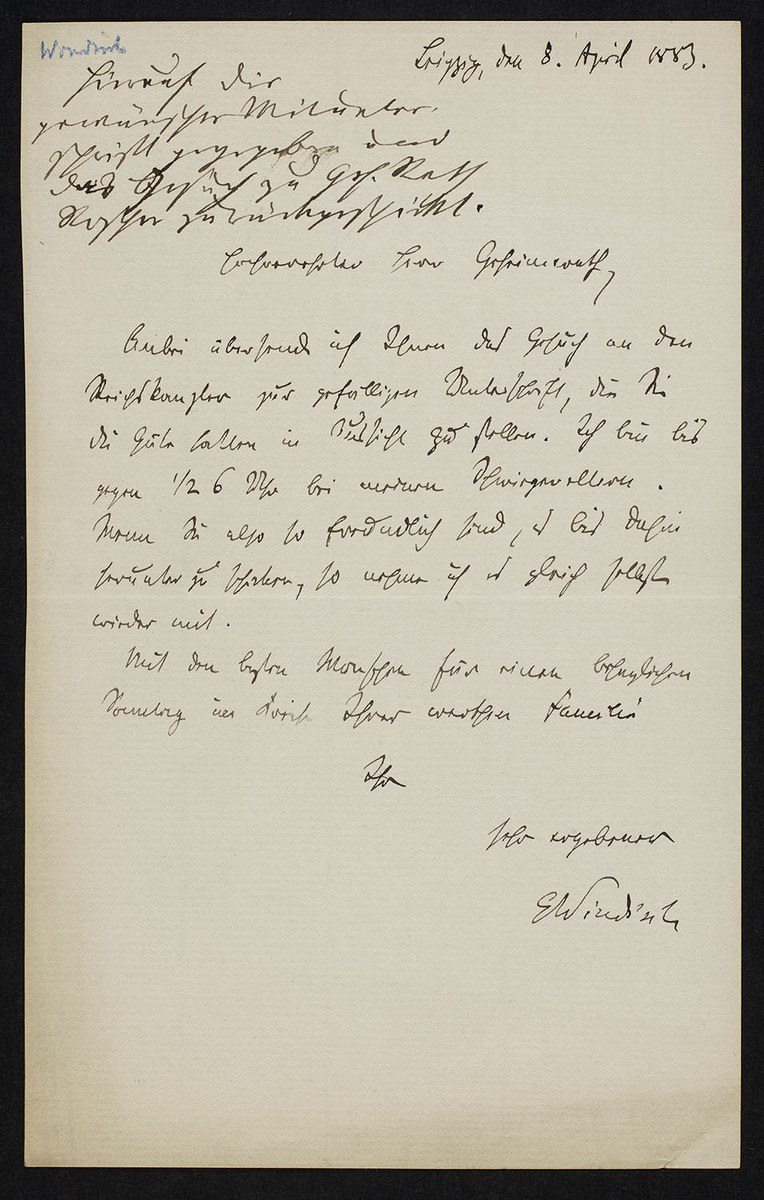 Windisch
Leipzig, den 8. April 1883.
Hierauf die
gewünschte Mitunter-
schrift gegeben und
das Gesuch zu Geh. Rath
Roscher zurückgeschickt.
Hochverehrter Herr Geheimrath,
Anbei übersende ich Ihnen das Gesuch an den
Reichskanzler zur gefälligen Unterschrift, die Sie
die Güte hatten in Aussicht zu stellen. Ich bin bis
gegen 1/2 6 Uhr bei meinen Schwiegereltern.
Wenn Sie also so freundlich sind, es bis dahin
herunter zu schicken, so nehme ich es gleich selbst
wieder mit.
Mit den besten Wünschen für einen behaglichen
Sonntag im Kreise Ihrer werthen Familie
Ihr
sehr ergebener
EWindisch